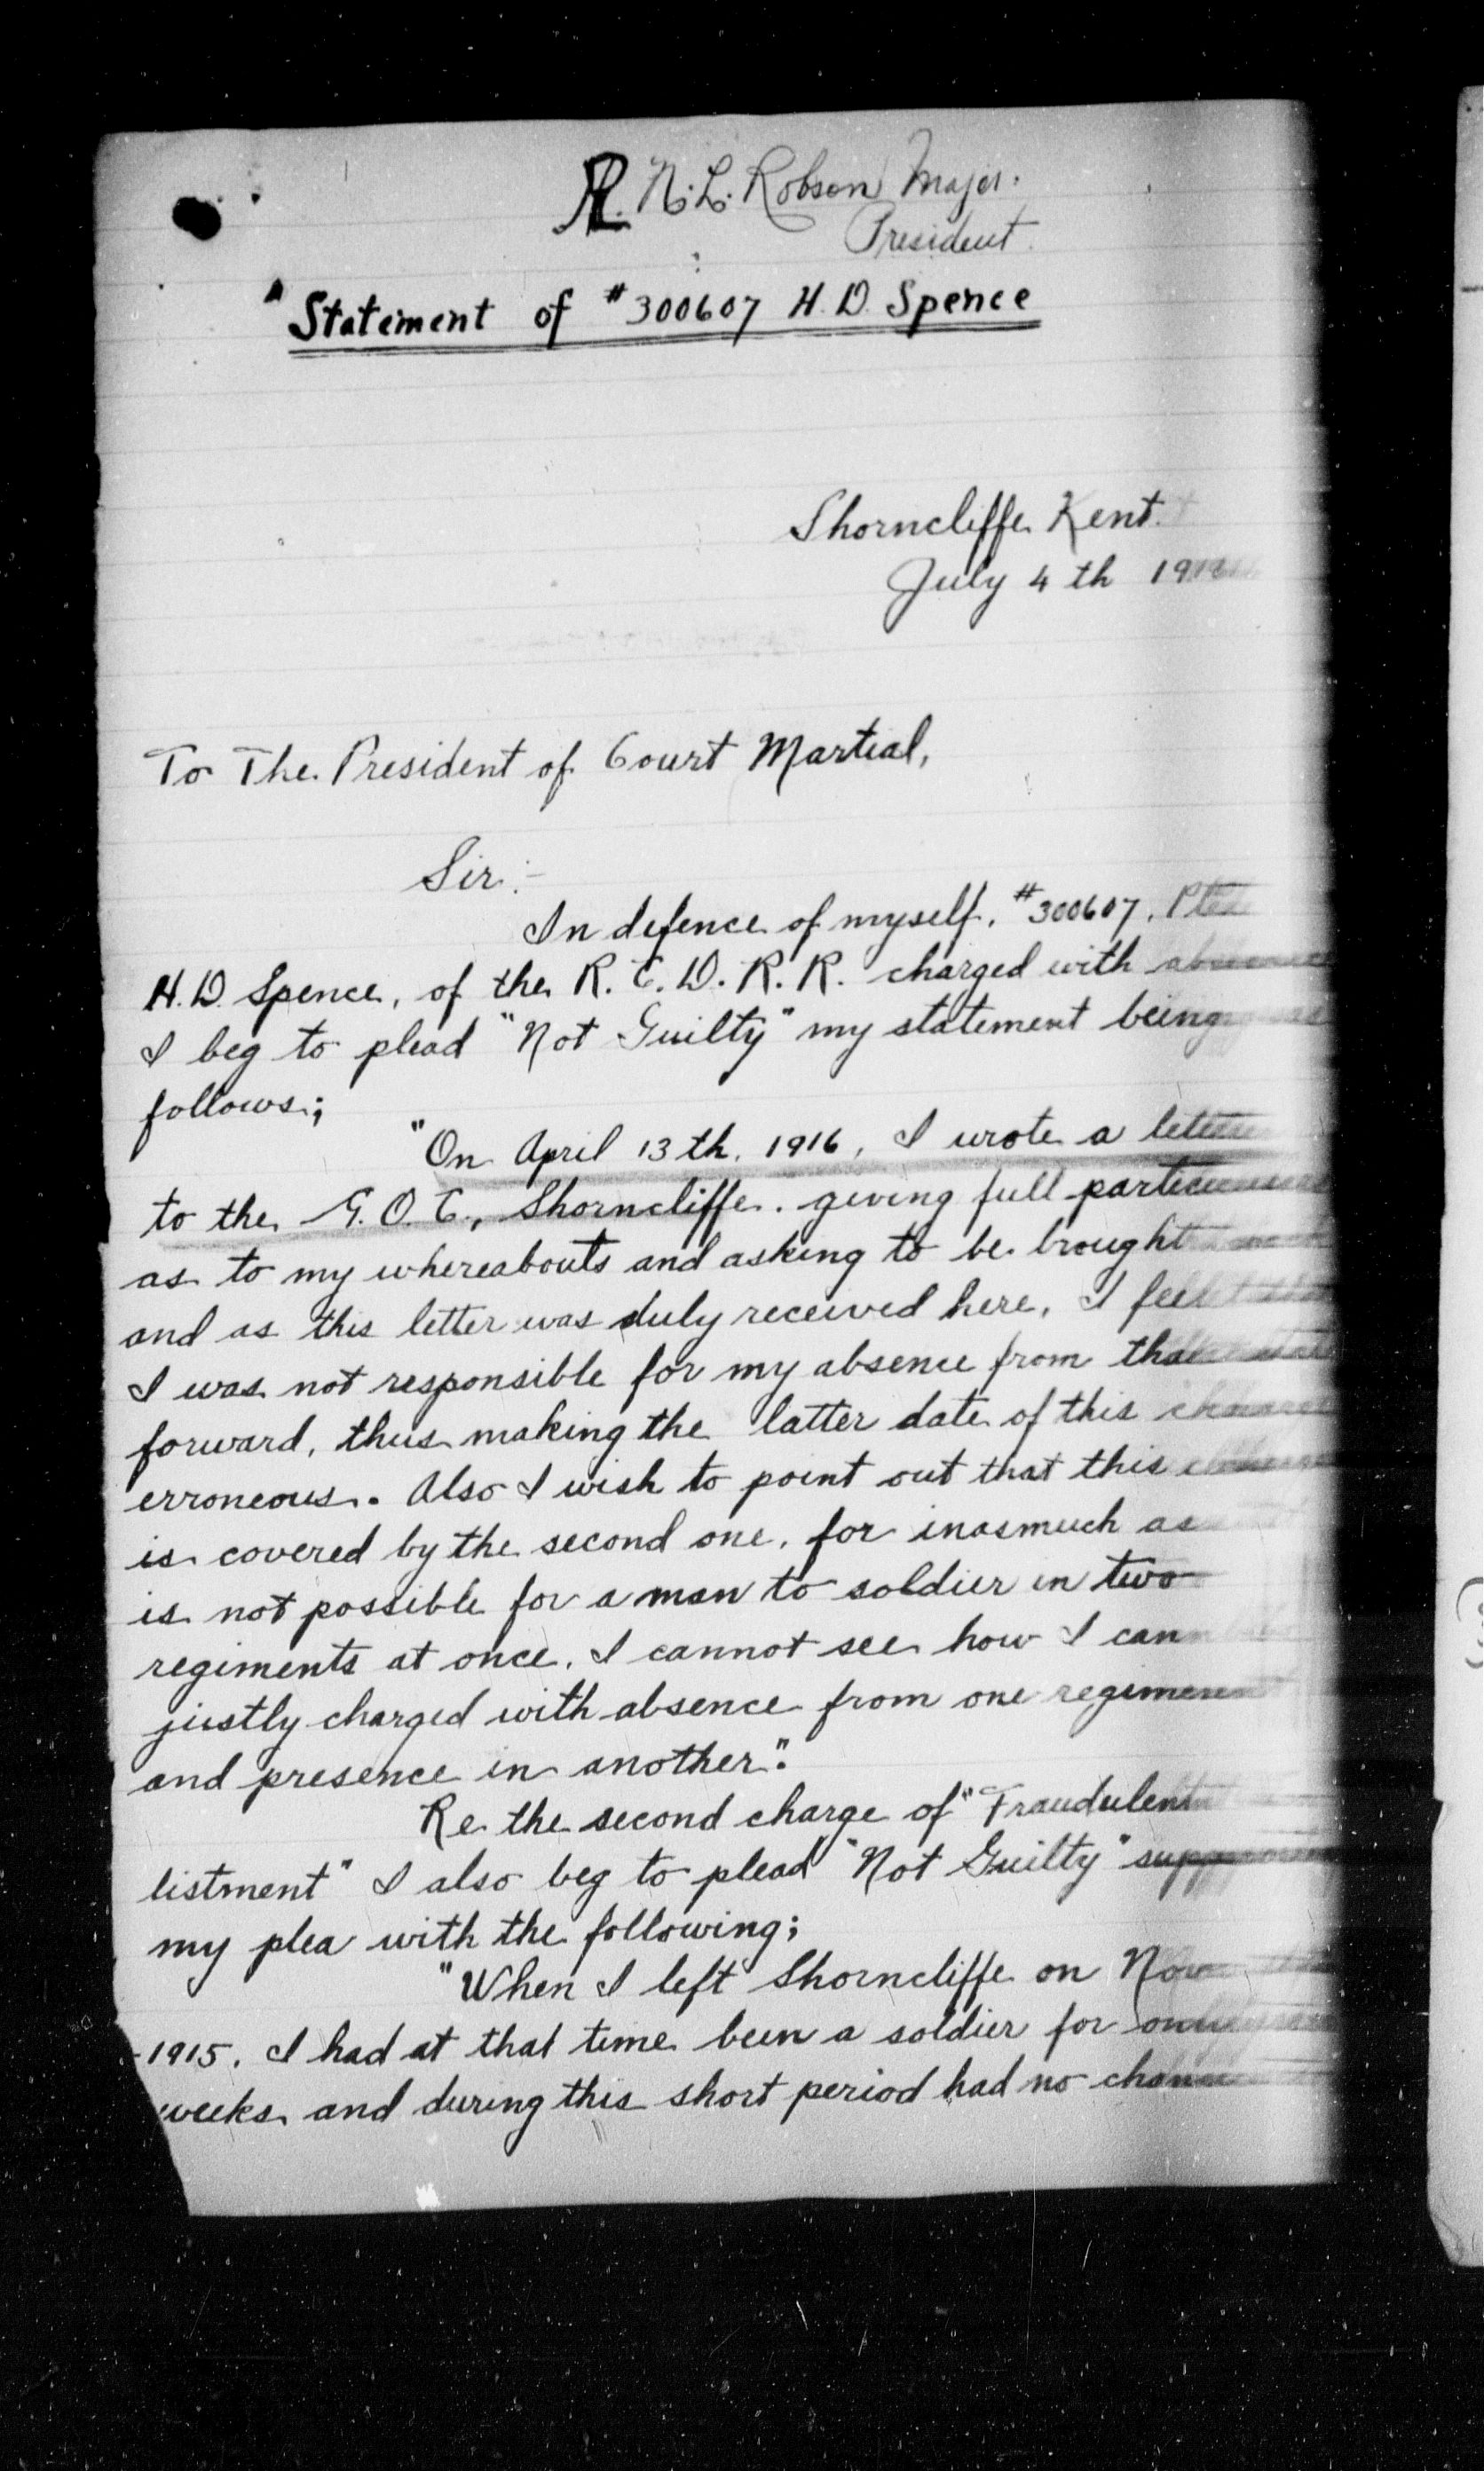 R. N. L. Robson Major.
President.
"Statement of #300607 H. D. Spence
Shorncliffe Kent.
July 4 th 191
To The President of Court Martial,
Sir:-
In defence of myself, #300607, Pte
H. D. Spence, of the R. C. D. R. R. charged with absence
I beg to plead "Not Guilty" my statement being as
follows;
"On April 13 th. 1916, I wrote a letter
to the G. O. C., Shorncliffe. giving full particulars
as to my whereabouts and asking to be brought
and as this letter was duly received here, I feel that
I was not responsible for my absence from that date
forward, thus making the latter date of this charge
erroneous. Also I wish to point out that this
is covered by the second one, for inasmuch as
is not possible for a man to soldier in two
regiments at once, I cannot see how I can
justly charged with absence from one regiment
and presence in another".
Re the second charge of "Fraudulent
listment" I also beg to plead "Not Guilty"
my plea with the following;
"When I left Shorncliffe on Nov
-1915. I had at that time been a soldier for only
weeks and during this short period had no chance